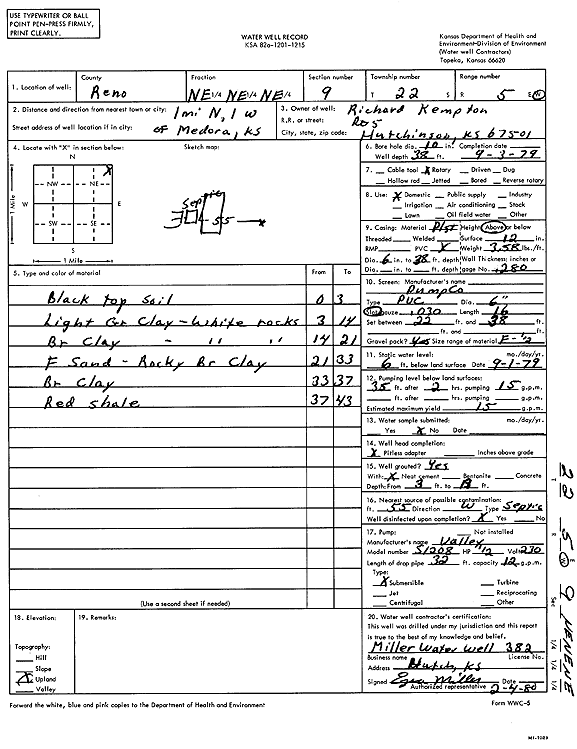 USE TYPEWRITER OR BALL
POINT PEN-PRESS FIRMLY,
PRINT CLEARLY.
WATER WELL RECORD
KSA 82a-1201-1215
Kansas Department of Health and
Environment-Division of Environment
(Water well Contractors)
Topeka, Kansas 66620
1. Location of well:
County
Reno
Fraction
NE 1/4 NE 1/4 NE 1/4
Section number
9
Township number
T 22 S
Range number
R 5 E W
2. Distance and direction from nearest town or city: 1 mi N, 1 W
Street address of well location if in city: of Medora, KS
3. Owner of well: Richard Kempton
R.R. or street: RD5
City, state, zip code: Hutchinson, KS 67501
4. Locate with "X" in section below:
Sketch map:
N
X
NW NE
W E
SW SE
S
1 Mile
1 Mile
Septic
55
6. Bore hole dia. 10 in. Completion date
Well depth 38 ft. 9-3-79
7. Cable tool X Rotary Driven Dug
Hollow rod Jetted Bored Reverse rotary
8. Use: X Domestic Public supply Industry
Irrigation Air conditioning Stock
Lawn Oil field water Other
9. Casing: Material Plst Height: Above or below
Threaded Welded Surface 12 in.
RMP PVC X Weight 3.58 lbs./ft.
Dia. 6 in. to 38 ft. depth Wall Thickness: inches or
Dia. in. to ft. depth gage No. .280
5. Type and color of material
From To
Black top soil 0 3
Light Gr Clay - White rocks 3 14
Br Clay - " " 14 21
F Sand - Rocky Br Clay 21 33
Br Clay 33 37
Red shale 37 43
(Use a second sheet if needed)
10. Screen: Manufacturer's name
PumpCo
Type PVC Dia. 6"
Slot gauze .030 Length 16
Set between 22 ft. and 38 ft.
ft. and ft.
Gravel pack? Yes Size range of material F-1/2
11. Static water level: mo./day/yr.
6 ft. below land surface Date 9-1-79
12. Pumping level below land surfaces:
35 ft. after 2 hrs. pumping 15 g.p.m.
ft. after hrs. pumping g.p.m.
Estimated maximum yield 15 g.p.m.
13. Water sample submitted: mo./day/yr.
Yes X No Date
14. Well head completion:
X Pitless adapter Inches above grade
15. Well grouted? Yes
With: X Neat cement Bentonite Concrete
Depth: From 3 ft. to ft.
16. Nearest source of possible contamination:
ft. 55 Direction W Type Septic
Well disinfected upon completion? X Yes No
17. Pump: Not installed
Manufacturer's name Valley
Model number S1208 HP 1/2 Volts 230
Length of drop pipe 32 ft. capacity 12 g.p.m.
Type:
X Submersible Turbine
Jet Reciprocating
Centrifugal Other
18. Elevation:
Topography:
Hill
Slope
X Upland
Valley
19. Remarks:
20. Water well contractor's certification:
This well was drilled under my jurisdiction and this report
is true to the best of my knowledge and belief.
Miller Water Well 382
Business name License No.
Address Hutch, KS
Signed Ezra Miller
Authorized representative 2-4-80
Forward the white, blue and pink copies to the Department of Health and Environment
Form WWC-5
T 22 R 5 E W Sec 9 NENENE
1/4 1/4 1/4